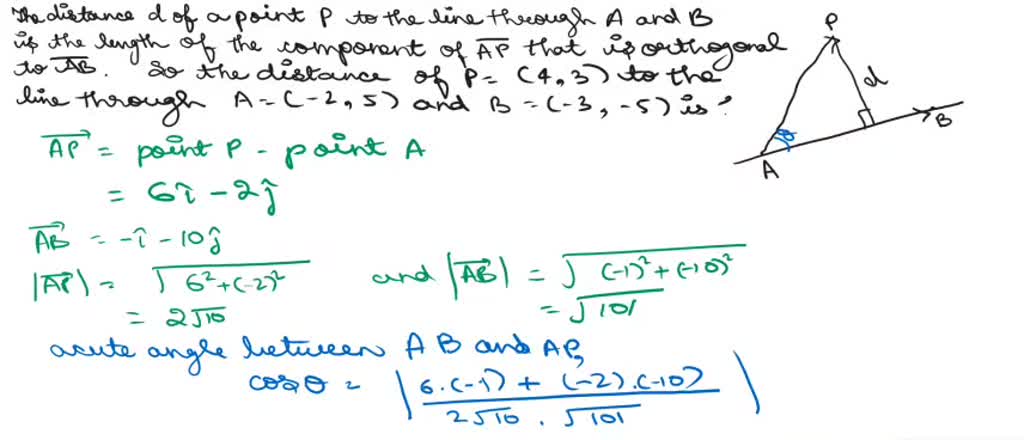 The distance d of a point P to the line through A and B
is the length of the component of AP that is orthogonal
to AB. So the distance of P = (4, 3) to the
line through A = (-2, 5) and B = (-3, -5) is ?
P
d
B
θ
A
AP⃗ = point P - point A
= 6î - 2ĵ
AB⃗ = -î - 10ĵ
|AP⃗| = √(6² + (-2)²) and |AB⃗| = √((-1)² + (-10)²)
= 2√10 = √101
acute angle between AB and AP,
cosθ = | (6·(-1) + (-2)·(-10)) / (2√10 · √101) |